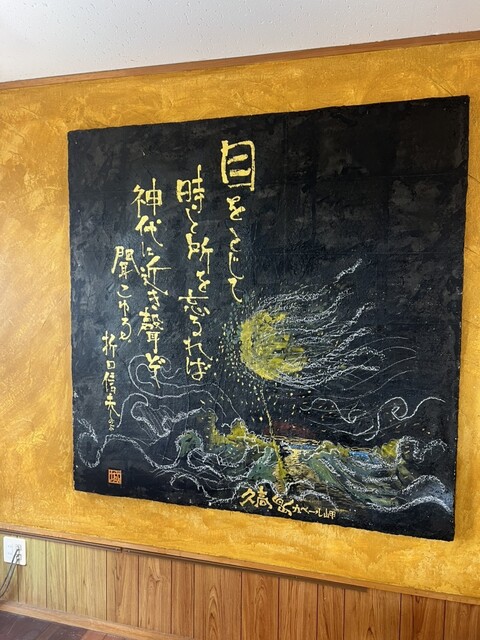 目をとじて
時と所を忘るれば
神代に近き聲ぞ
聞こゆる
折口信夫
久高島カベール岬